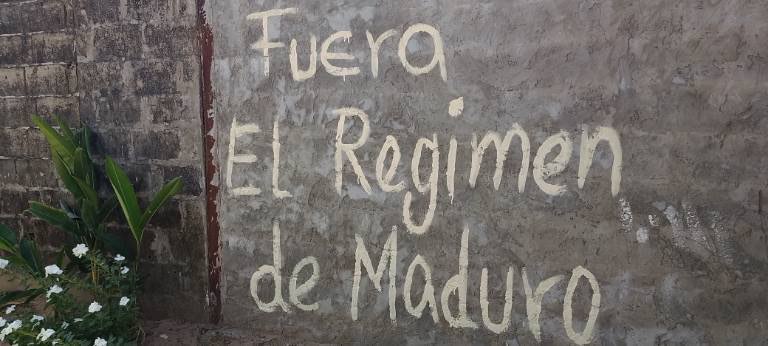 Fuera
El Regimen
de Maduro